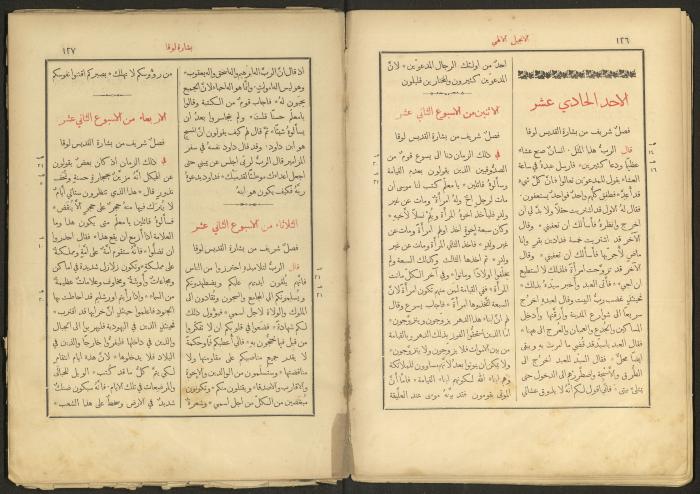 ١٢٦
الانجيل الالهي
الاحد الحادي عشر
فصل شريف من بشارة القديس لوقا
قال الربُّ هذا المثل. انسانٌ صنع عشاءً
عظيمًا ودعا كثيرين. فارسل عبده في ساعة
العشاء يقول للمدعوين تعالوا فانَّ كل شيءٍ
قد أُعدَّ. فطفق كلهم واحدٌ فواحدٌ يستعفون.
فقال له الاول قد اشتريت حقلًا ولا بدَّ لي ان
اخرج وانظره فأسألك ان تعفيني. وقال
الآخر قد اشتريت خمسة فدادين بقرٍ وانا
ماضٍ لأجربها فأسألك ان تعفيني. وقال
الآخر قد تزوجت امرأةً فلذلك لا استطيع
ان اجيء. فأتى العبد واخبر سيده بذلك.
فحينئذٍ غضب ربُّ البيت وقال لعبده اخرج
سريعًا الى شوارع المدينة وأزقتها وأدخل
المساكين والجدع والعميان والعرج الى هنا.
فقال العبد يا سيد قد قُضي ما امرت به ويبقى
ايضًا محلٌّ. فقال السيد للعبد اخرج الى
الطرق والأسيجة واضطررهم الى الدخول حتى
يمتلئ بيتي. فاني اقول لكم انهُ لا يذوق عشائي
احدٌ من اولئك الرجال المدعوين. لانَّ
المدعوين كثيرون والمختارين قليلون
الاثنين من الاسبوع الثاني عشر
فصل شريف من بشارة القديس لوقا
في ذلك الزمان دنا الى يسوع قومٌ من
الصدُّوقيين الذين يقولون بعدم القيامة
وسألوهُ قائلين. يا معلم كتب لنا موسى ان
مات لرجلٍ اخٌ ولهُ امرأةٌ ومات عن غير
ولدٍ فليأخذ اخوهُ المرأة ويُقِم نسلًا لأخيهِ.
وكان سبعة اخوةٍ اخذ اولهم امرأةً ومات عن
غير ولدٍ. فأخذ الثاني المرأة ومات عن غير
ولدٍ. ثم اخذها الثالث وكذلك السبعة ولم
يخلفوا اولادًا وماتوا. وفي آخر الكل ماتت
المرأة. ففي القيامة لمن منهم تكون امرأةً لانَّ
السبعة اتخذوها امرأةً. فاجاب يسوع وقال
لهم انَّ ابناء هذا الدهر يزوّجون ويتزوّجون.
امَّا الذين استحقوا الفوز بذلك الدهر وبالقيامة
من بين الاموات فلا يزوّجون ولا يتزوّجون.
ولا يمكن ان يموتوا بعدُ لانهم يساوون للملائكة
وهم ابناء الله لكونهم ابناء القيامة. فامَّا أنَّ
الموتى يقومون فقد بيَّنهُ موسى عند العليقة
بشارة لوقا
١٢٧
اذ قال انَّ الربَّ اله ابرهيم واله اسحق واله يعقوب.
وهو ليس اله اموات وانما هو اله احياء لانَّ الجميع
يحيون لهُ. فاجاب قومٌ من الكتبة وقالوا
يا معلم حسنًا قلت. ولم يتجاسروا بعدُ ان
يسألوهُ شيئًا. ثمَّ قال لهم كيف يقولون انَّ المسيح
هو ابن داود. وقد قال داود نفسه في سفر
المزامير قال الربُّ لربي اجلس عن يميني حتى
اجعل اعداءك موطئًا لقدميك. فداود يدعوهُ
ربهُ فكيف يكون هو ابنهُ
الثلاثاء من الاسبوع الثاني عشر
فصل شريف من بشارة القديس لوقا
قال الربُّ لتلاميذهِ احترزوا من الناس
فانهم يلقون ايديهم عليكم ويضطهدونكم
ويسلمونكم الى المجامع والسجون وتُقادون الى
الملوك والولاة لاجل اسمي. فيؤول ذلك
لكم شهادةً. فضعوا في قلوبكم ان لا تفكروا
من قبل فيما تحتجون بهِ. فاني اعطيكم فمًا وحكمةً
لا يقدر جميع مناصبيكم على مقاومتها ولا
مناقضتها. وستُسلمون من الوالدين والاخوة
والاقارب والاصدقاء ويقتلون منكم. وتكونون
مبغضين من الكل من اجل اسمي. وشعرةٌ
من رؤوسكم لا تهلك. بصبركم اقتنوا نفوسكم
الاربعاء من الاسبوع الثاني عشر
فصل شريف من بشارة القديس لوقا
في ذلك الزمان اذ كان بعضٌ يقولون
عن الهيكل انهُ مزيَّنٌ بحجارةٍ حسنةٍ وتُحَف
نذورٍ قال. هذا الذي تنظرون ستأتي ايامٌ
لا يُترك فيها منهُ حجرٌ على حجرٍ الَّا يُنقَض.
فسألوهُ قائلين يا معلم متى يكون هذا وما
العلامة اذا ازمع ان يقع هذا. فقال احذروا
ان تضلوا. فانهُ ستقوم أمَّةٌ على أمَّةٍ ومملكةٌ
على مملكةٍ وتكون زلازل شديدةٌ في اماكن
ومجاعاتٌ وأوبئةٌ ومخاوف وعلاماتٌ عظيمةٌ
من السماء. واذا رأيتم اورشليم قد احاطت بها
الجنود فاعلموا حينئذٍ انَّ خرابها قد اقترب.
حينئذٍ الذين في اليهودية فليهربوا الى الجبال
والذين في داخلها فليفرُّوا خارجًا والذين في
البلاد فلا يدخلوها. لانَّ هذه ايام انتقامٍ
لكي يتمَّ كلُّ ما قد كُتب. الويل للحبالى
والمرضعات في تلك الايام. فانهُ سيكون ضنكٌ
شديدٌ في الارض وسخطٌ على هذا الشعب.